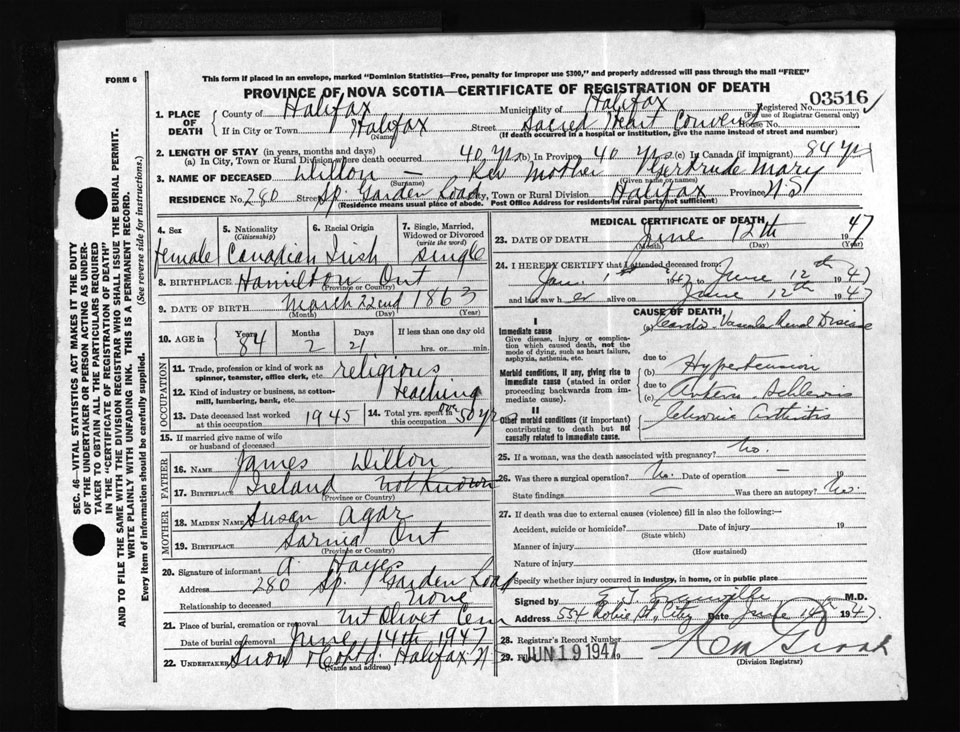 FORM 6
This form if placed in an envelope, marked "Dominion Statistics—Free, penalty for improper use $300," and properly addressed will pass through the mail "FREE"
PROVINCE OF NOVA SCOTIA—CERTIFICATE OF REGISTRATION OF DEATH
1. PLACE OF DEATH County of Halifax Municipality of Halifax Registered No. 03516
(For use of Registrar General only)
If in City or Town Halifax Street Sacred Heart Convent House No.
(Name) (If death occurred in a hospital or institution, give the name instead of street and number)
2. LENGTH OF STAY (in years, months and days)
(a) In City, Town or Rural Division where death occurred 40 yrs (b) In Province 40 yrs (c) In Canada (if immigrant) 84 yrs
3. NAME OF DECEASED Dillon — Rev Mother Gertrude Mary
(Surname) (Given name or names)
RESIDENCE No. 280 Street Sp. Garden Road City, Town or Rural Division Halifax Province N.S
(Residence means usual place of abode. Post Office Address for residents in rural parts not sufficient)
4. Sex female
5. Nationality (Citizenship) Canadian
6. Racial Origin Irish
7. Single, Married, Widowed or Divorced (write the word) single
8. BIRTHPLACE Hamilton Ont
(Province or Country)
9. DATE OF BIRTH March 22nd 1863
(Month) (Day) (Year)
10. AGE in Years 84 Months 2 Days 21 If less than one day old hrs. or min.
OCCUPATION
11. Trade, profession or kind of work as spinner, teamster, office clerk, etc. religious
12. Kind of industry or business, as cotton-mill, lumbering, bank, etc. teaching
13. Date deceased last worked at this occupation 1945
14. Total yrs. spent in this occupation over 50 yrs
15. If married give name of wife or husband of deceased
FATHER
16. NAME James Dillon
17. BIRTHPLACE Ireland Not Known
(Province or Country)
MOTHER
18. MAIDEN NAME Susan Agar
19. BIRTHPLACE Sarnia Ont
(Province or Country)
20. Signature of informant A Hayes
Address 280 Sp. Garden Road
Relationship to deceased None
21. Place of burial, cremation or removal Mt Olivet Cem
Date of burial or removal June 14th 1947
22. Undertaker Snow & Co Ltd. Halifax N.S
(Name and address)
MEDICAL CERTIFICATE OF DEATH
23. DATE OF DEATH June 12th 1947
(Month) (Day) (Year)
24. I HEREBY CERTIFY that I attended deceased from
Jan. 1st 1947 to June 12th 1947
and last saw her alive on June 12th 1947
CAUSE OF DEATH
I
Immediate cause
Give disease, injury or complication which caused death, not the mode of dying, such as heart failure, asphyxia, asthenia, etc.
(a) Cardio-Vascular Renal Disease
due to
Morbid conditions, if any, giving rise to immediate cause (stated in order proceeding backwards from immediate cause).
(b) Hypertension
due to
(c) Arterio-Sclerosis
II
Other morbid conditions (if important) contributing to death but not causally related to immediate cause.
Chronic Arthritis
25. If a woman, was the death associated with pregnancy? No.
26. Was there a surgical operation? No. Date of operation — 19
State findings — Was there an autopsy? No.
27. If death was due to external causes (violence) fill in also the following:—
Accident, suicide or homicide? Date of injury 19
(State which)
Manner of injury
(How sustained)
Nature of injury
Specify whether injury occurred in industry, in home, or in public place
Signed by E. J. M.D.
Address 554 Robie St, City Date June 14th 1947
28. Registrar's Record Number
29. JUN 19 1947 19
(Division Registrar)
SEC. 46—VITAL STATISTICS ACT MAKES IT THE DUTY
OF THE UNDERTAKER OR PERSON ACTING AS UNDER-
TAKER TO OBTAIN ALL THE PARTICULARS REQUIRED
IN THE "CERTIFICATE OF REGISTRATION OF DEATH"
AND TO FILE THE SAME WITH THE DIVISION REGISTRAR WHO SHALL ISSUE THE BURIAL PERMIT.
WRITE PLAINLY WITH UNFADING INK. THIS IS A PERMANENT RECORD.
Every item of information should be carefully supplied. (See reverse side for instructions.)